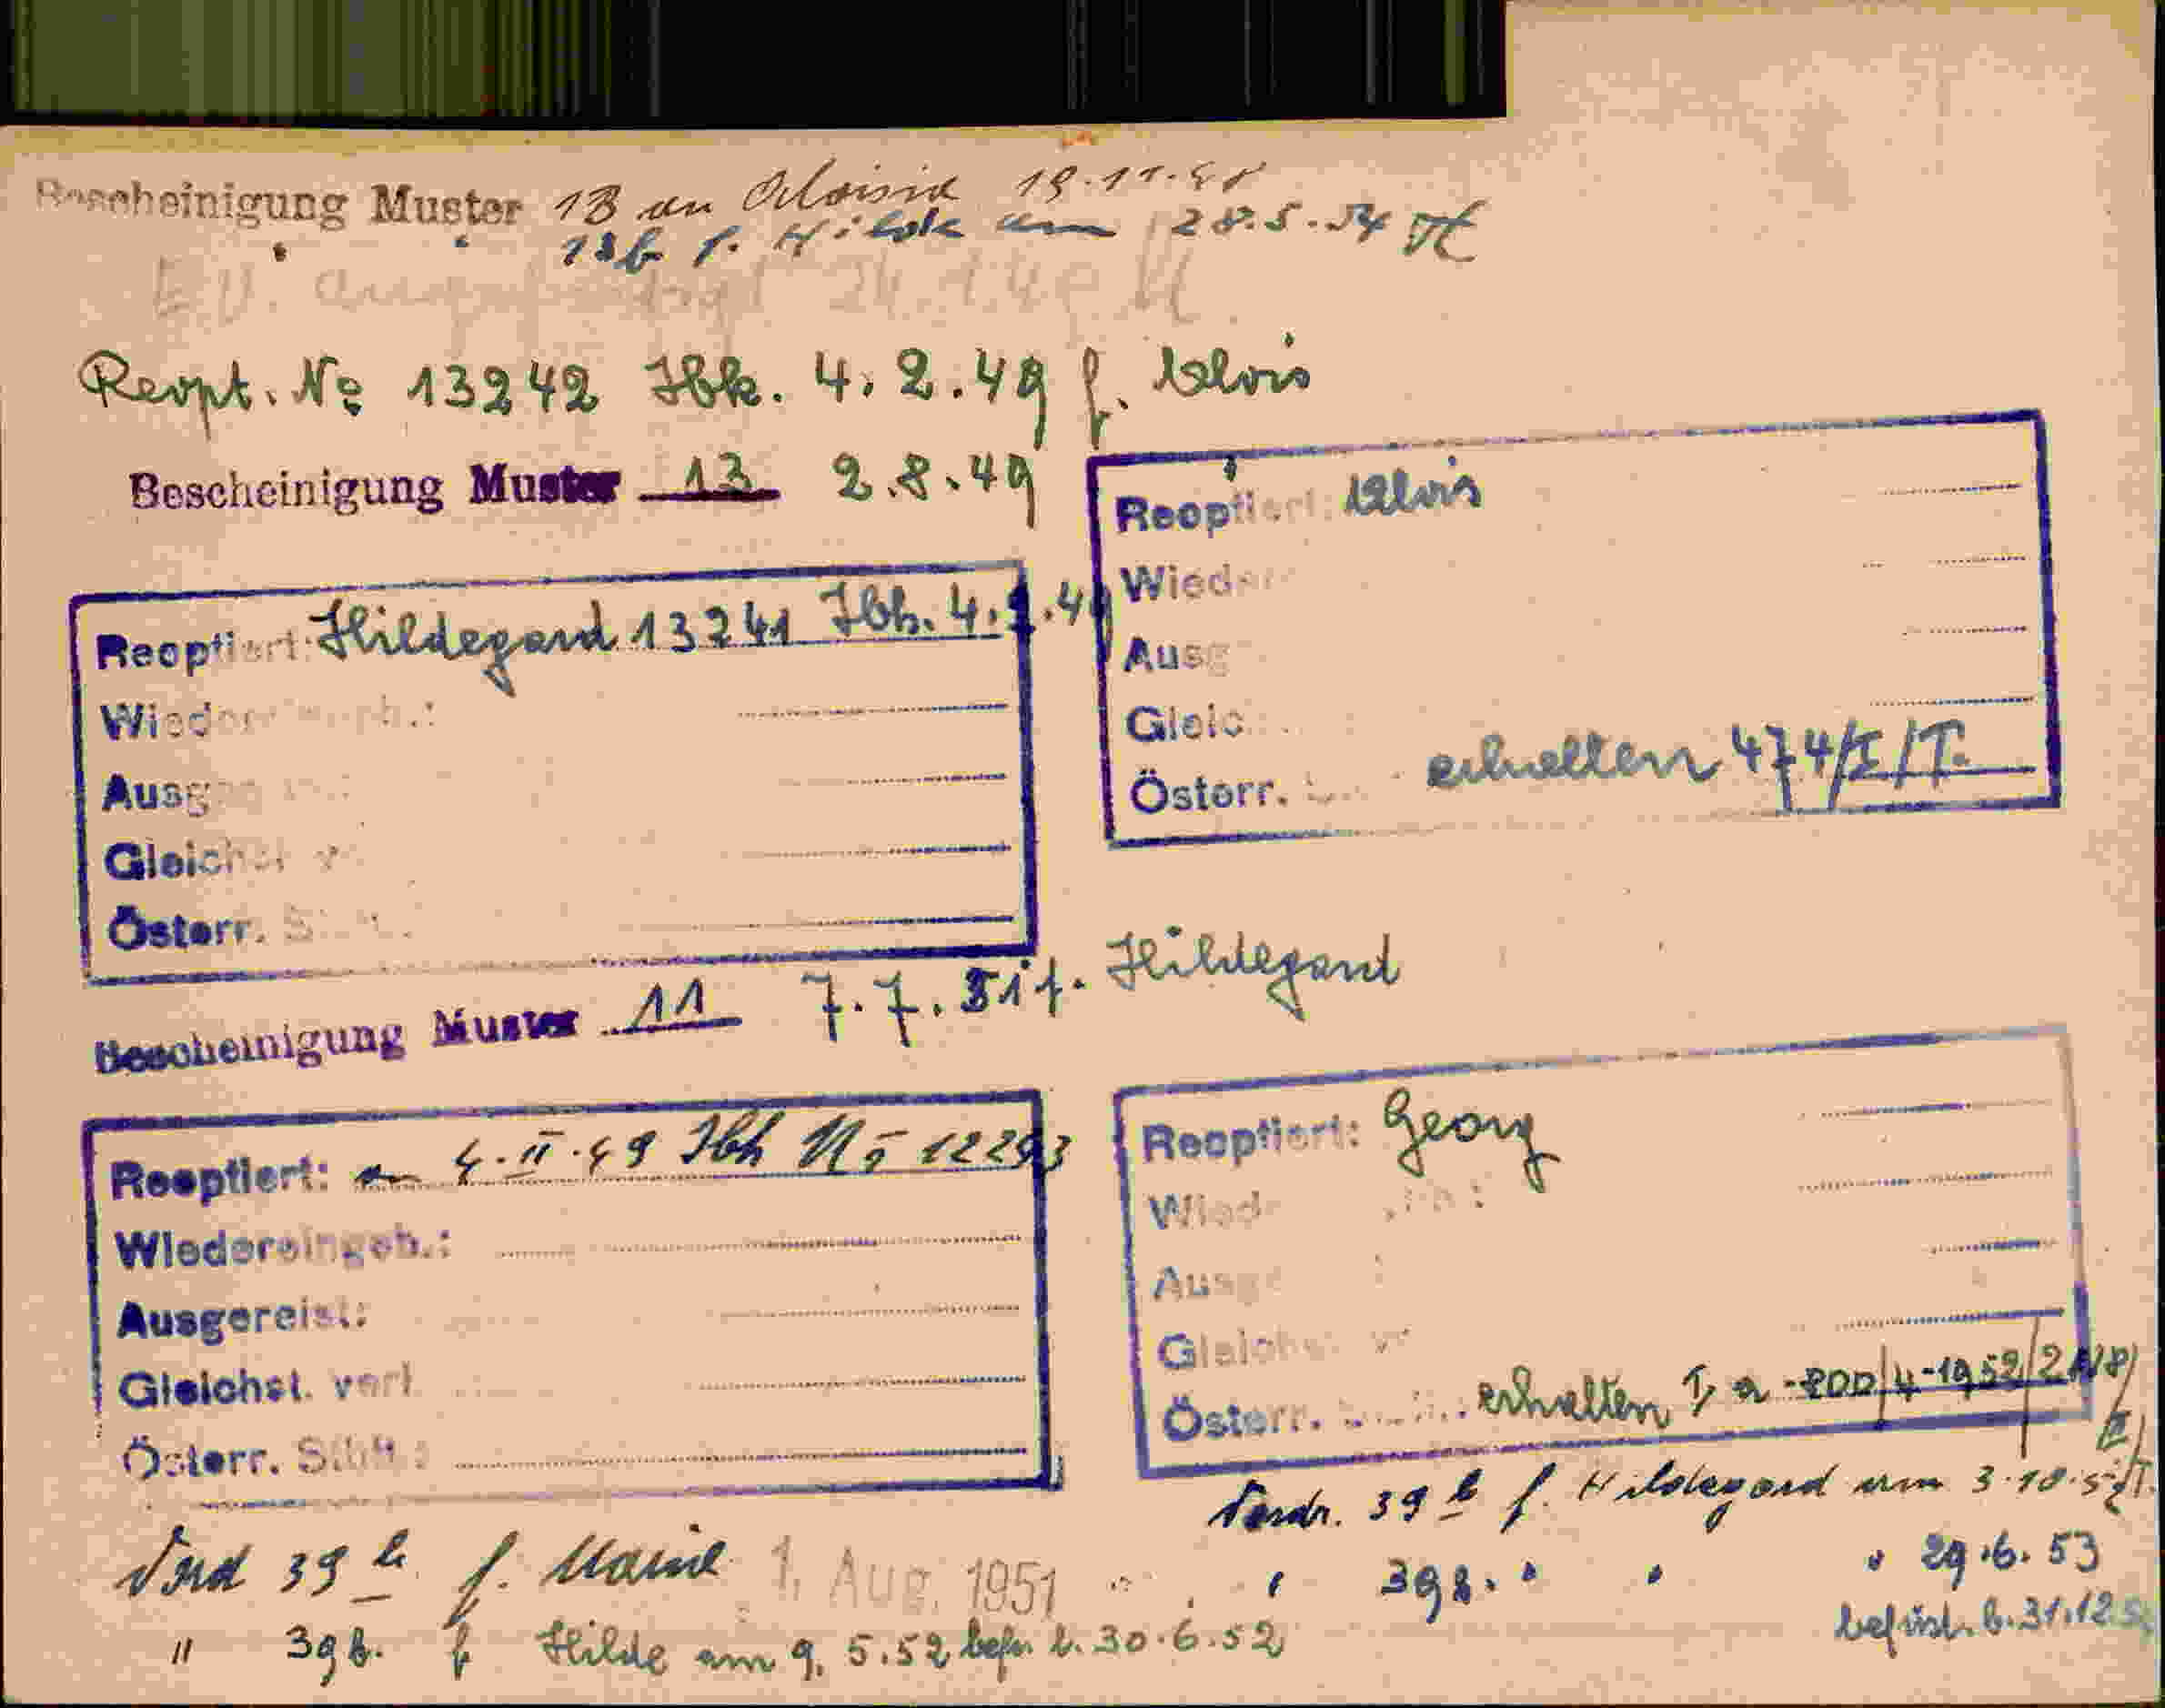 Bescheinigung Muster 13 an Aloisia 19.11.48
" " 13b f. Hilde am 28.5.54
24.1.49
Reopt. No 13242 Ibk. 4.2.49 f. Alois
Bescheinigung Muster 13 2.8.49
Reoptiert: Alois
Wieder
Ausg
Gleic
Österr. erhalten 474/I/T.
Reoptiert: Hildegard 13241 Ibk. 4.2.49
Wieder
Ausg
Gleichst. v
Österr. S
Bescheinigung Muster 11 7.7.51 f. Hildegard
Reoptiert: am 4.II.49 Ibk No 12293
Wiedereingeb.:
Ausgereist:
Gleichst. verl
Österr. Stb.:
Reoptiert: Georg
Wied
Ausg
Gleichst. v
Österr. erhalten I a-800/4-1952/
Vordr. 39b f. Hildegard am 3.10.52
" 39b. " " " 29.6.53
befrist. b. 31.12.53
Vord 39b f. Maria 1. Aug. 1951
" 39b. f Hilde am 9.5.52 befr. b. 30.6.52